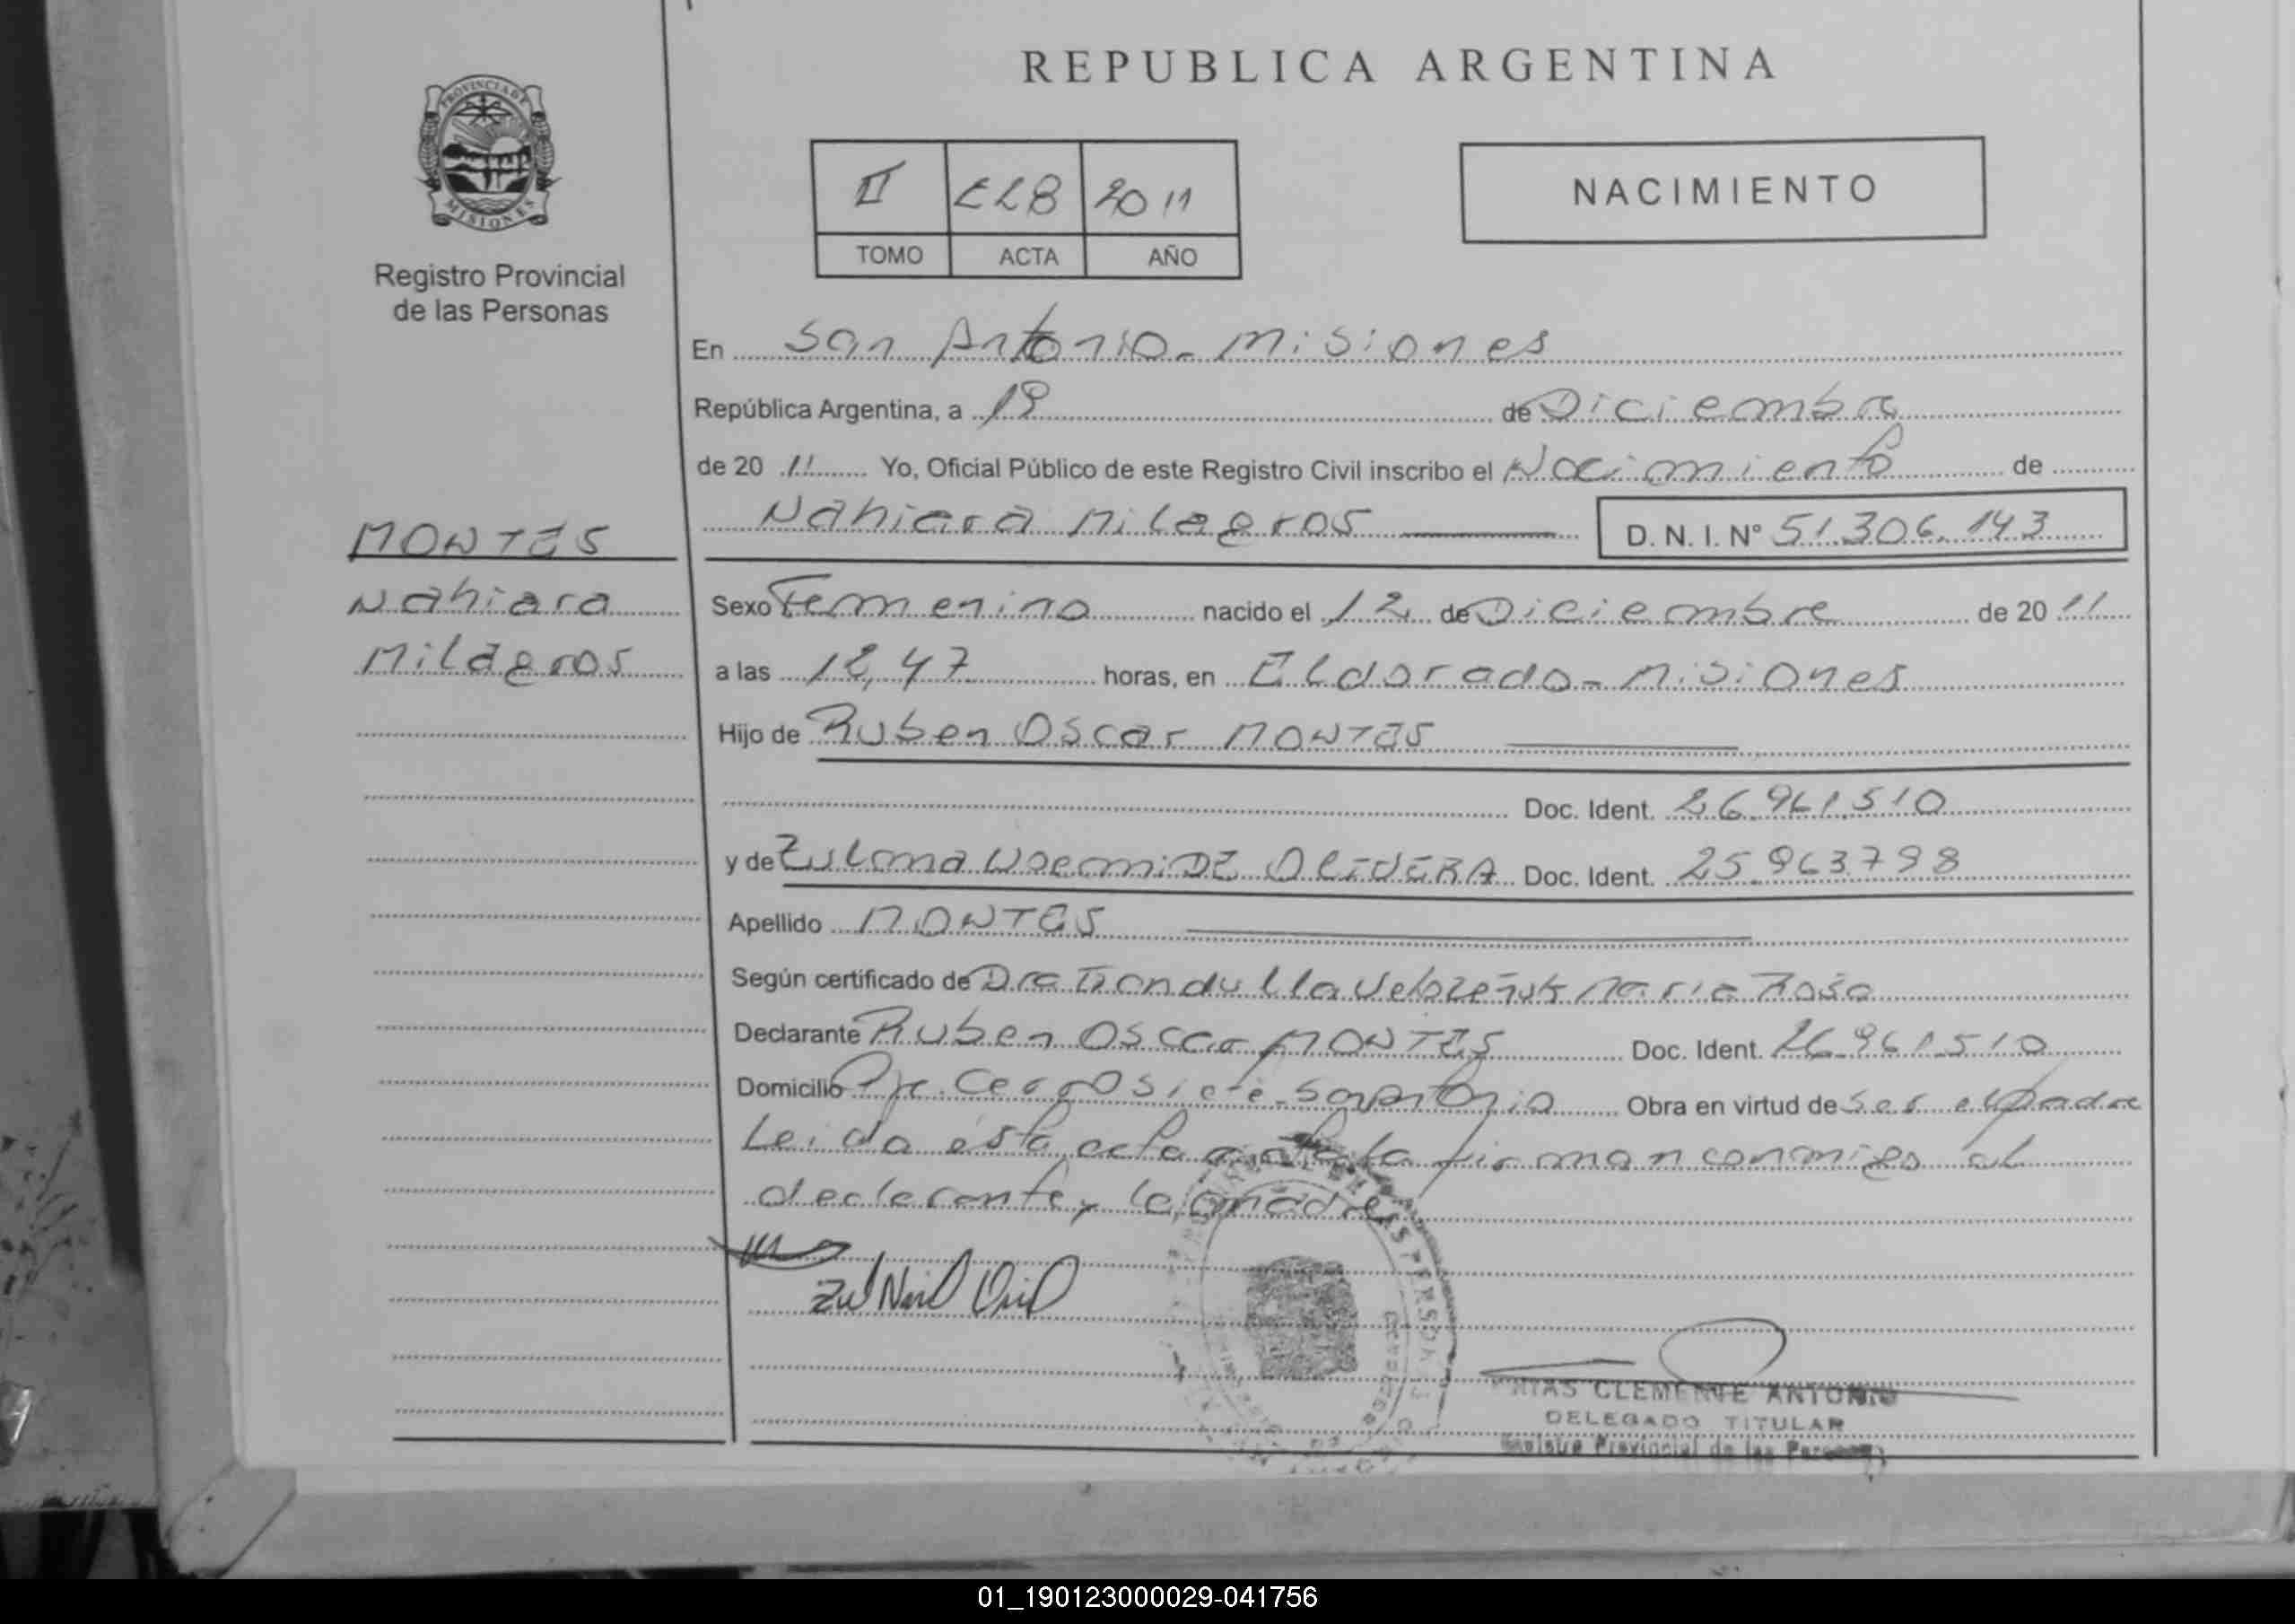 REPUBLICA ARGENTINA
PROVINCIA DE
MISIONES
Registro Provincial
de las Personas
II 2011
TOMO ACTA AÑO
NACIMIENTO
En San Antonio - Misiones
República Argentina, a 19 de Diciembre
de 20 11 Yo, Oficial Público de este Registro Civil inscribo el Nacimiento de
MONTES
Nahiara
Milagros
Nahiara Milagros D. N. I. Nº 51.306.143
Sexo Femenino nacido el 12 de Diciembre de 20 11
a las horas, en Eldorado - Misiones
Hijo de Ruben Oscar MONTES
Doc. Ident. 26.961.510
y de Zulma Noemi DE OLIVERA Doc. Ident. 25.963.798
Apellido MONTES
Según certificado de Dra Maria Rosa
Declarante Ruben Oscar MONTES Doc. Ident. 26.961.510
Domicilio Pje. Cerro Siete - San Antonio Obra en virtud de ser el padre
Leida esta acta la firman conmigo el
declarante y la madre
CLEMENTE ANTONIO
DELEGADO TITULAR
Registro Provincial de las Personas
01_190123000029-041756